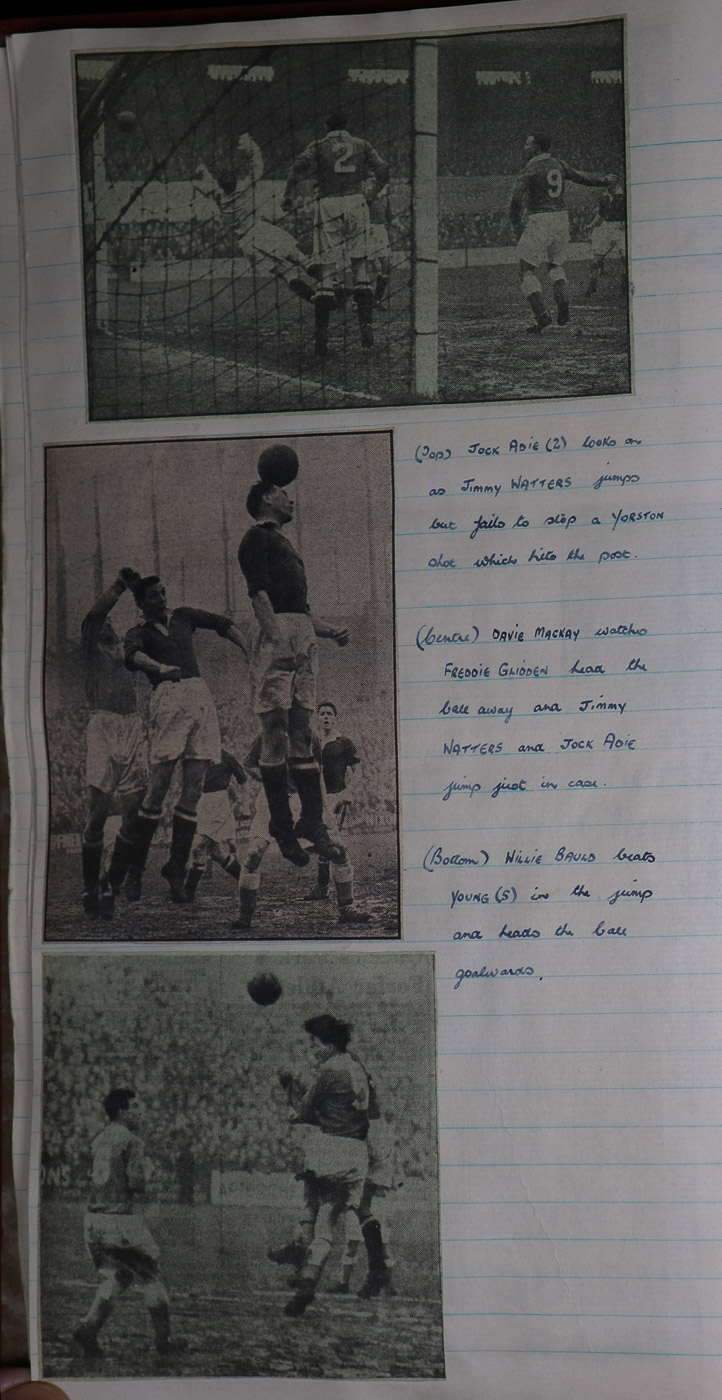 2
9
(Top) JOCK ADIE (2) looks on
as JIMMY WATTERS jumps
but fails to stop a YORSTON
shot which hits the post.
(Centre) DAVIE MACKAY watches
FREDDIE GLIDDEN head the
ball away and JIMMY
WATTERS and JOCK ADIE
jump just in case.
(Bottom) WILLIE BAULD beats
YOUNG (5) in the jump
and heads the ball
goalwards.
ONS
LONDON